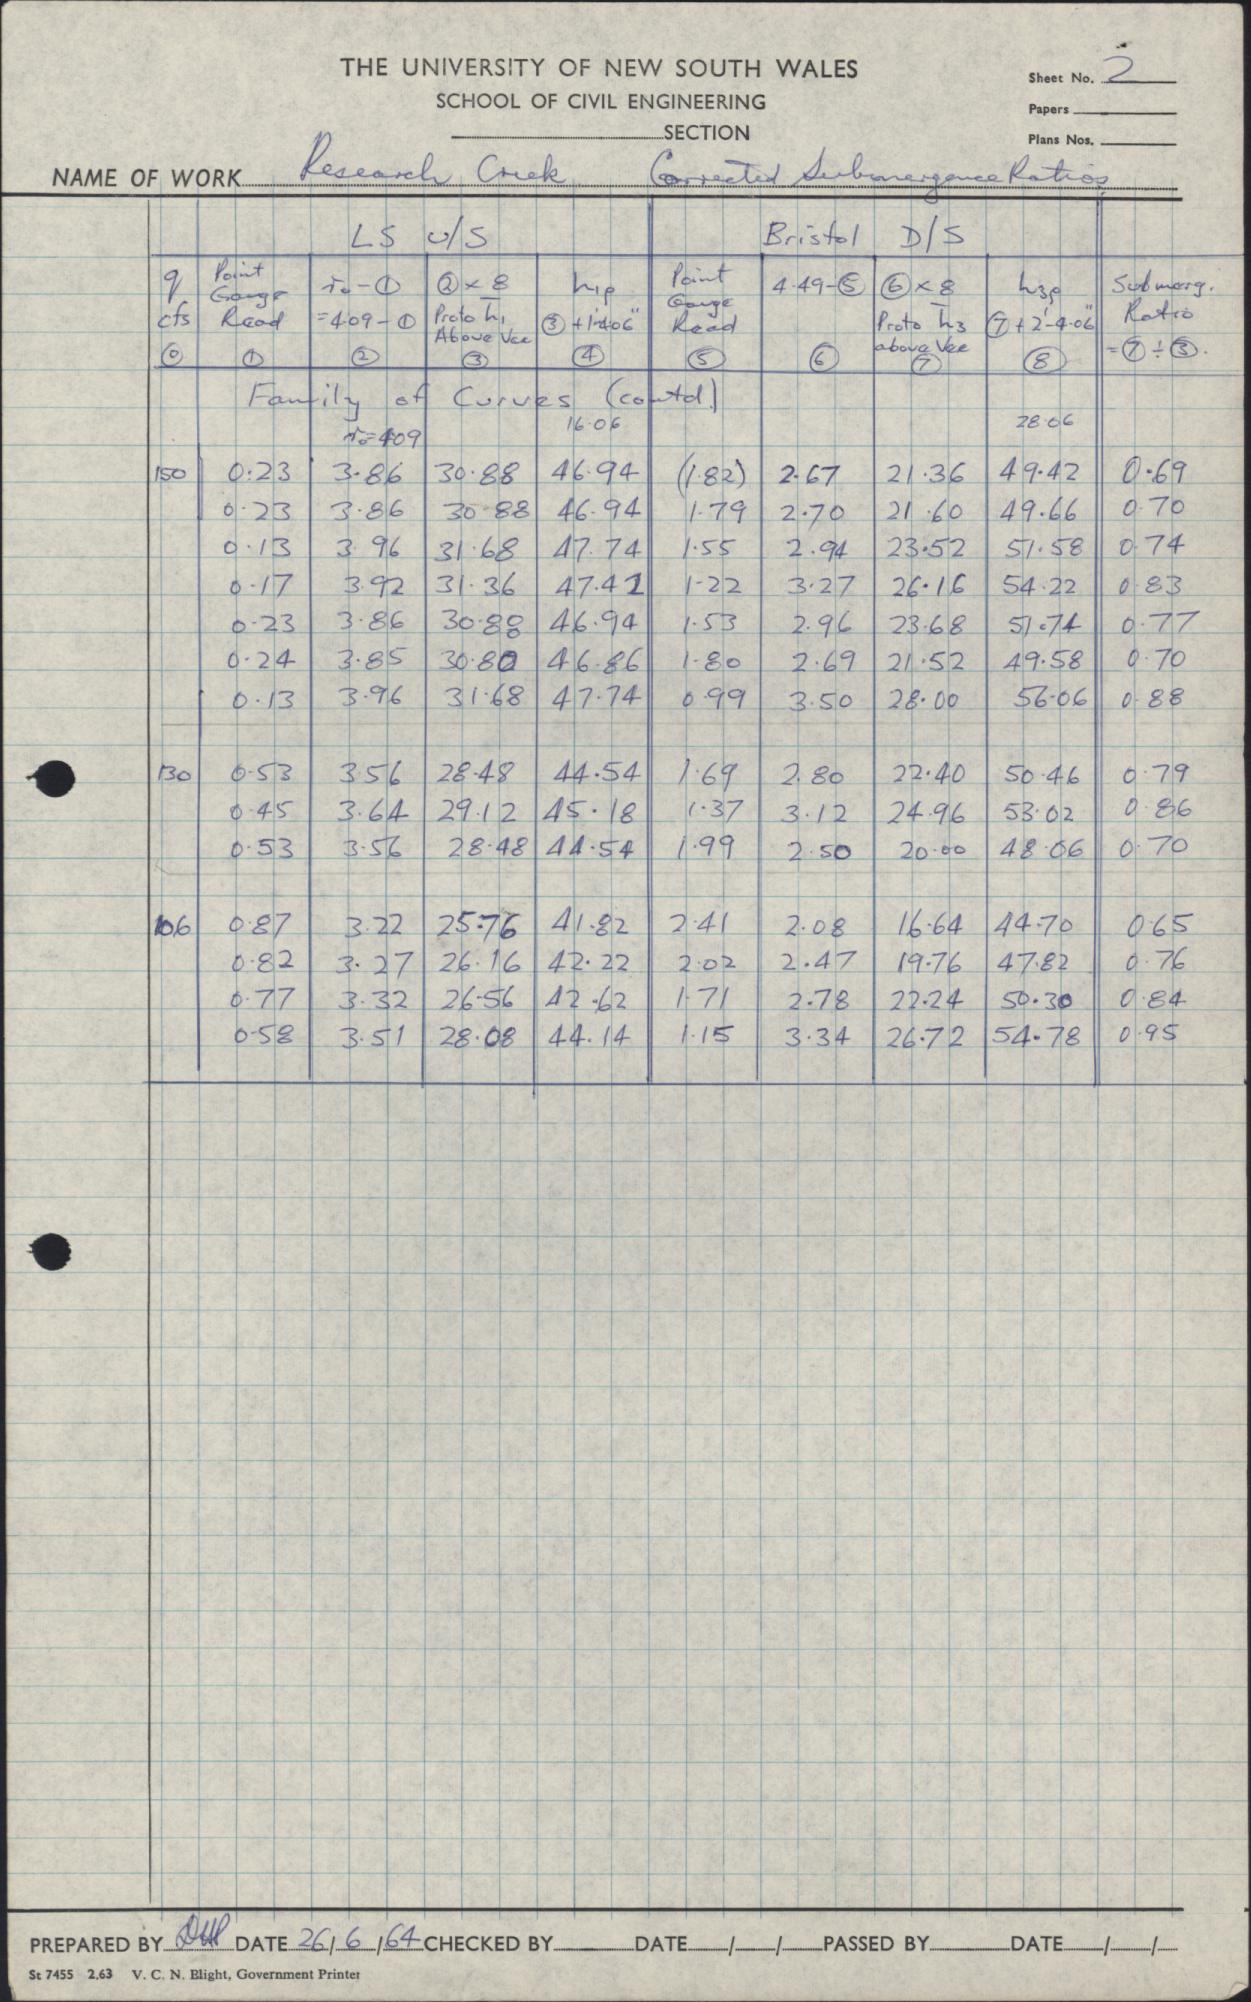 THE UNIVERSITY OF NEW SOUTH WALES
Sheet No. 2
SCHOOL OF CIVIL ENGINEERING
Papers
SECTION
Plans Nos.
NAME OF WORK Research Creek Corrected Submergence Ratios
LS U/S Bristol D/S
q cfs ⓪
Point Gauge Read ①
r₀-① =4.09-① ②
②×8 Proto h₁ Above Vee ③
h1p ③+1'-4.06" ④
Point Gauge Read ⑤
4.49-⑤ ⑥
⑥×8 Proto h₃ above Vee ⑦
h3p ⑦+2'-4.06" ⑧
Submerg. Ratio =⑦÷③.
Family of Curves (contd.)
r₀=409 16.06 28.06
150 0.23 3.86 30.88 46.94 (1.82) 2.67 21.36 49.42 0.69
0.23 3.86 30.88 46.94 1.79 2.70 21.60 49.66 0.70
0.13 3.96 31.68 47.74 1.55 2.94 23.52 51.58 0.74
0.17 3.92 31.36 47.42 1.22 3.27 26.16 54.22 0.83
0.23 3.86 30.88 46.94 1.53 2.96 23.68 51.74 0.77
0.24 3.85 30.80 46.86 1.80 2.69 21.52 49.58 0.70
0.13 3.96 31.68 47.74 0.99 3.50 28.00 56.06 0.88
130 0.53 3.56 28.48 44.54 1.69 2.80 22.40 50.46 0.79
0.45 3.64 29.12 45.18 1.37 3.12 24.96 53.02 0.86
0.53 3.56 28.48 44.54 1.99 2.50 20.00 48.06 0.70
106 0.87 3.22 25.76 41.82 2.41 2.08 16.64 44.70 0.65
0.82 3.27 26.16 42.22 2.02 2.47 19.76 47.82 0.76
0.77 3.32 26.56 42.62 1.71 2.78 22.24 50.30 0.84
0.58 3.51 28.08 44.14 1.15 3.34 26.72 54.78 0.95
PREPARED BY DATE 26/6/64 CHECKED BY DATE / / PASSED BY DATE / /
St 7455 2.63 V. C. N. Blight, Government Printer